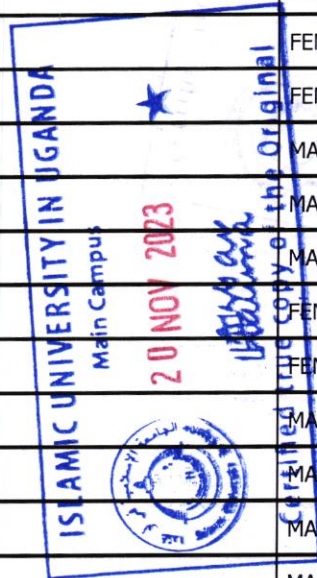 ISLAMIC UNIVERSITY IN UGANDA
Main Campus
20 NOV 2023
Certified true copy of the Original
FE
FE
MA
MA
MA
FE
FE
MA
MA
MA
MA